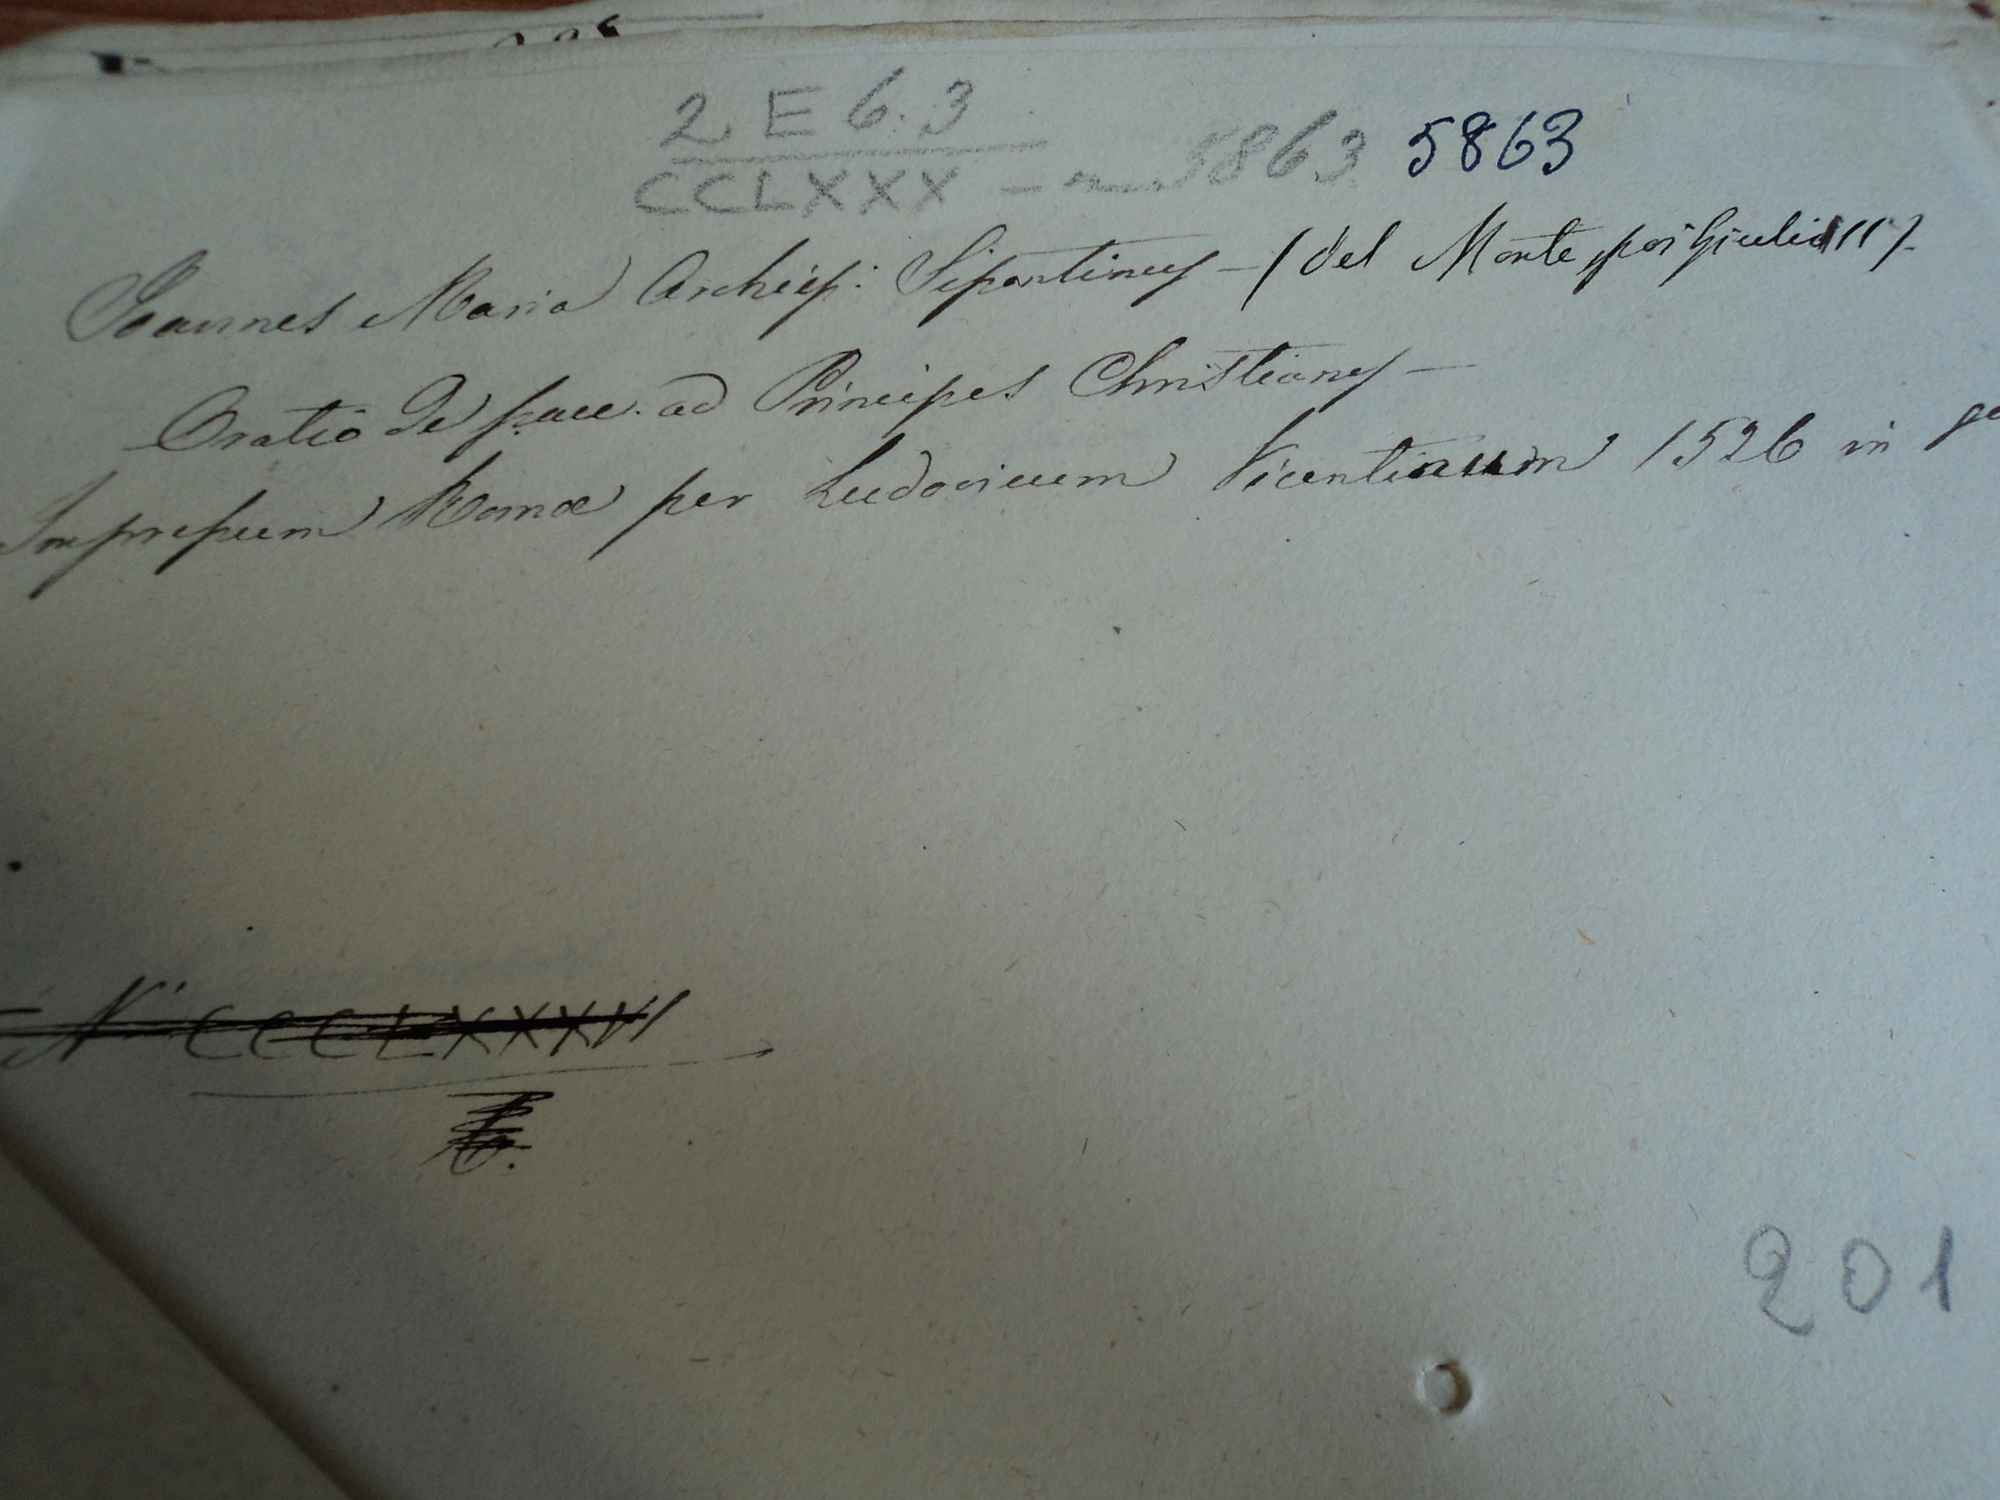 2 E 6.3
CCLXXX — 5863 5863
Joannes Maria Archiep: Sipontinus — (del Monte, poi Giulio III).
Oratio de pace ad Principes Christianos —
Impressum Romæ per Ludovicum Vicentinum 1526 in
N° CCCLXXXVI
201